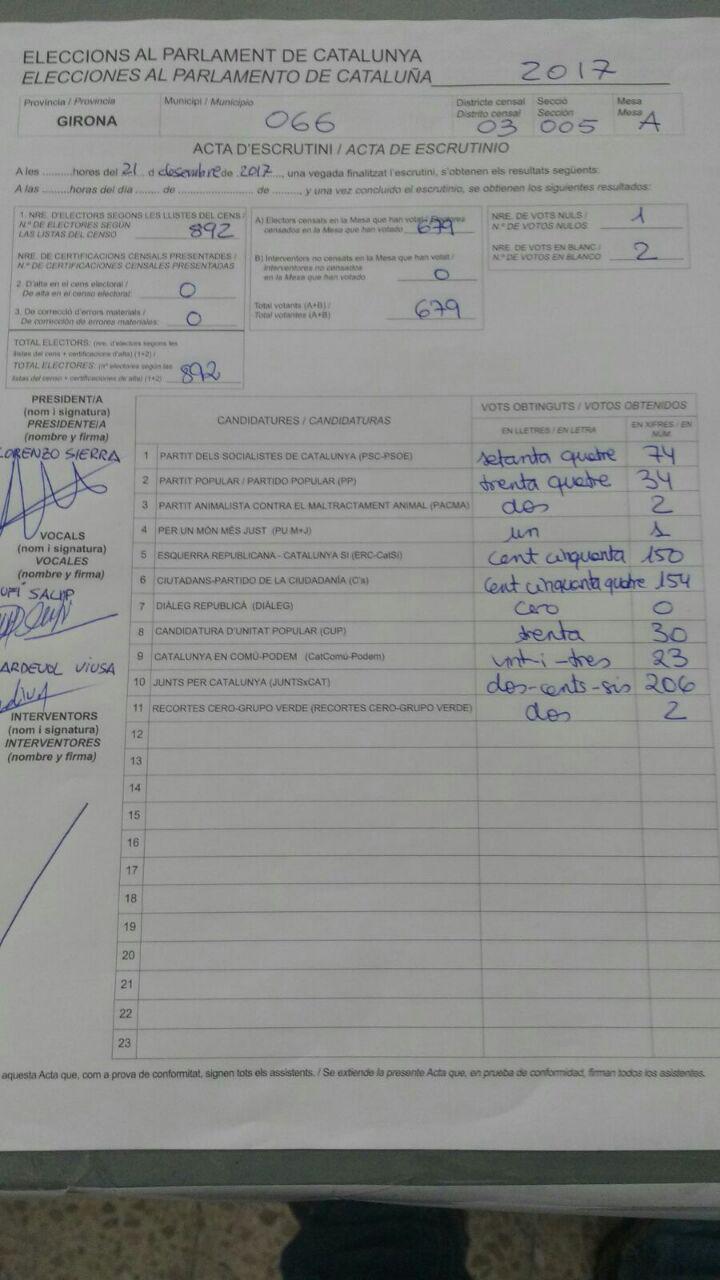 ELECCIONS AL PARLAMENT DE CATALUNYA
ELECCIONES AL PARLAMENTO DE CATALUÑA 2017
Província / Provincia
GIRONA
Municipi / Municipio
066
Districte censal
Distrito censal
03
Secció
Sección
005
Mesa
Mesa
A
ACTA D'ESCRUTINI / ACTA DE ESCRUTINIO
A les ..........hores del 21 d desembre de 2017, una vegada finalitzat l'escrutini, s'obtenen els resultats següents:
A las .........horas del día ...... de .................... de ........, y una vez concluido el escrutinio, se obtienen los siguientes resultados:
1. NRE. D'ELECTORS SEGONS LES LLISTES DEL CENS /
N.º DE ELECTORES SEGÚN
LAS LISTAS DEL CENSO 892
NRE. DE CERTIFICACIONS CENSALS PRESENTADES /
N.º DE CERTIFICACIONES CENSALES PRESENTADAS
2. D'alta en el cens electoral /
De alta en el censo electoral: 0
3. De correcció d'errors materials /
De corrección de errores materiales: 0
TOTAL ELECTORS: (nre. d'electors segons les
llistes del cens + certificacions d'alta) (1+2) /
TOTAL ELECTORES: (nº electores según las
listas del censo + certificaciones de alta) (1+2) 892
A) Electors censats en la Mesa que han votat / Electores
censados en la Mesa que han votado 679
B) Interventors no censats en la Mesa que han votat /
Interventores no censados
en la Mesa que han votado 0
Total votants (A+B) /
Total votantes (A+B) 679
NRE. DE VOTS NULS /
N.º DE VOTOS NULOS 1
NRE. DE VOTS EN BLANC /
N.º DE VOTOS EN BLANCO 2
PRESIDENT/A
(nom i signatura)
PRESIDENTE/A
(nombre y firma)
LORENZO SIERRA
VOCALS
(nom i signatura)
VOCALES
(nombre y firma)
ARDEVOL VIUSA
INTERVENTORS
(nom i signatura)
INTERVENTORES
(nombre y firma)
CANDIDATURES / CANDIDATURAS
VOTS OBTINGUTS / VOTOS OBTENIDOS
EN LLETRES / EN LETRA
EN XIFRES / EN
NÚM.
1 PARTIT DELS SOCIALISTES DE CATALUNYA (PSC-PSOE) setanta quatre 74
2 PARTIT POPULAR / PARTIDO POPULAR (PP) trenta quatre 34
3 PARTIT ANIMALISTA CONTRA EL MALTRACTAMENT ANIMAL (PACMA) dos 2
4 PER UN MÓN MÉS JUST (PU M+J) un 1
5 ESQUERRA REPUBLICANA - CATALUNYA SÍ (ERC-CatSí) cent cinquanta 150
6 CIUTADANS-PARTIDO DE LA CIUDADANÍA (C's) cent cinquanta quatre 154
7 DIÀLEG REPUBLICÀ (DIÀLEG) cero 0
8 CANDIDATURA D'UNITAT POPULAR (CUP) trenta 30
9 CATALUNYA EN COMÚ-PODEM (CatComú-Podem) vint-i-tres 23
10 JUNTS PER CATALUNYA (JUNTSxCAT) dos-cents-sis 206
11 RECORTES CERO-GRUPO VERDE (RECORTES CERO-GRUPO VERDE) dos 2
12
13
14
15
16
17
18
19
20
21
22
23
aquesta Acta que, com a prova de conformitat, signen tots els assistents. / Se extiende la presente Acta que, en prueba de conformidad, firman todos los asistentes.